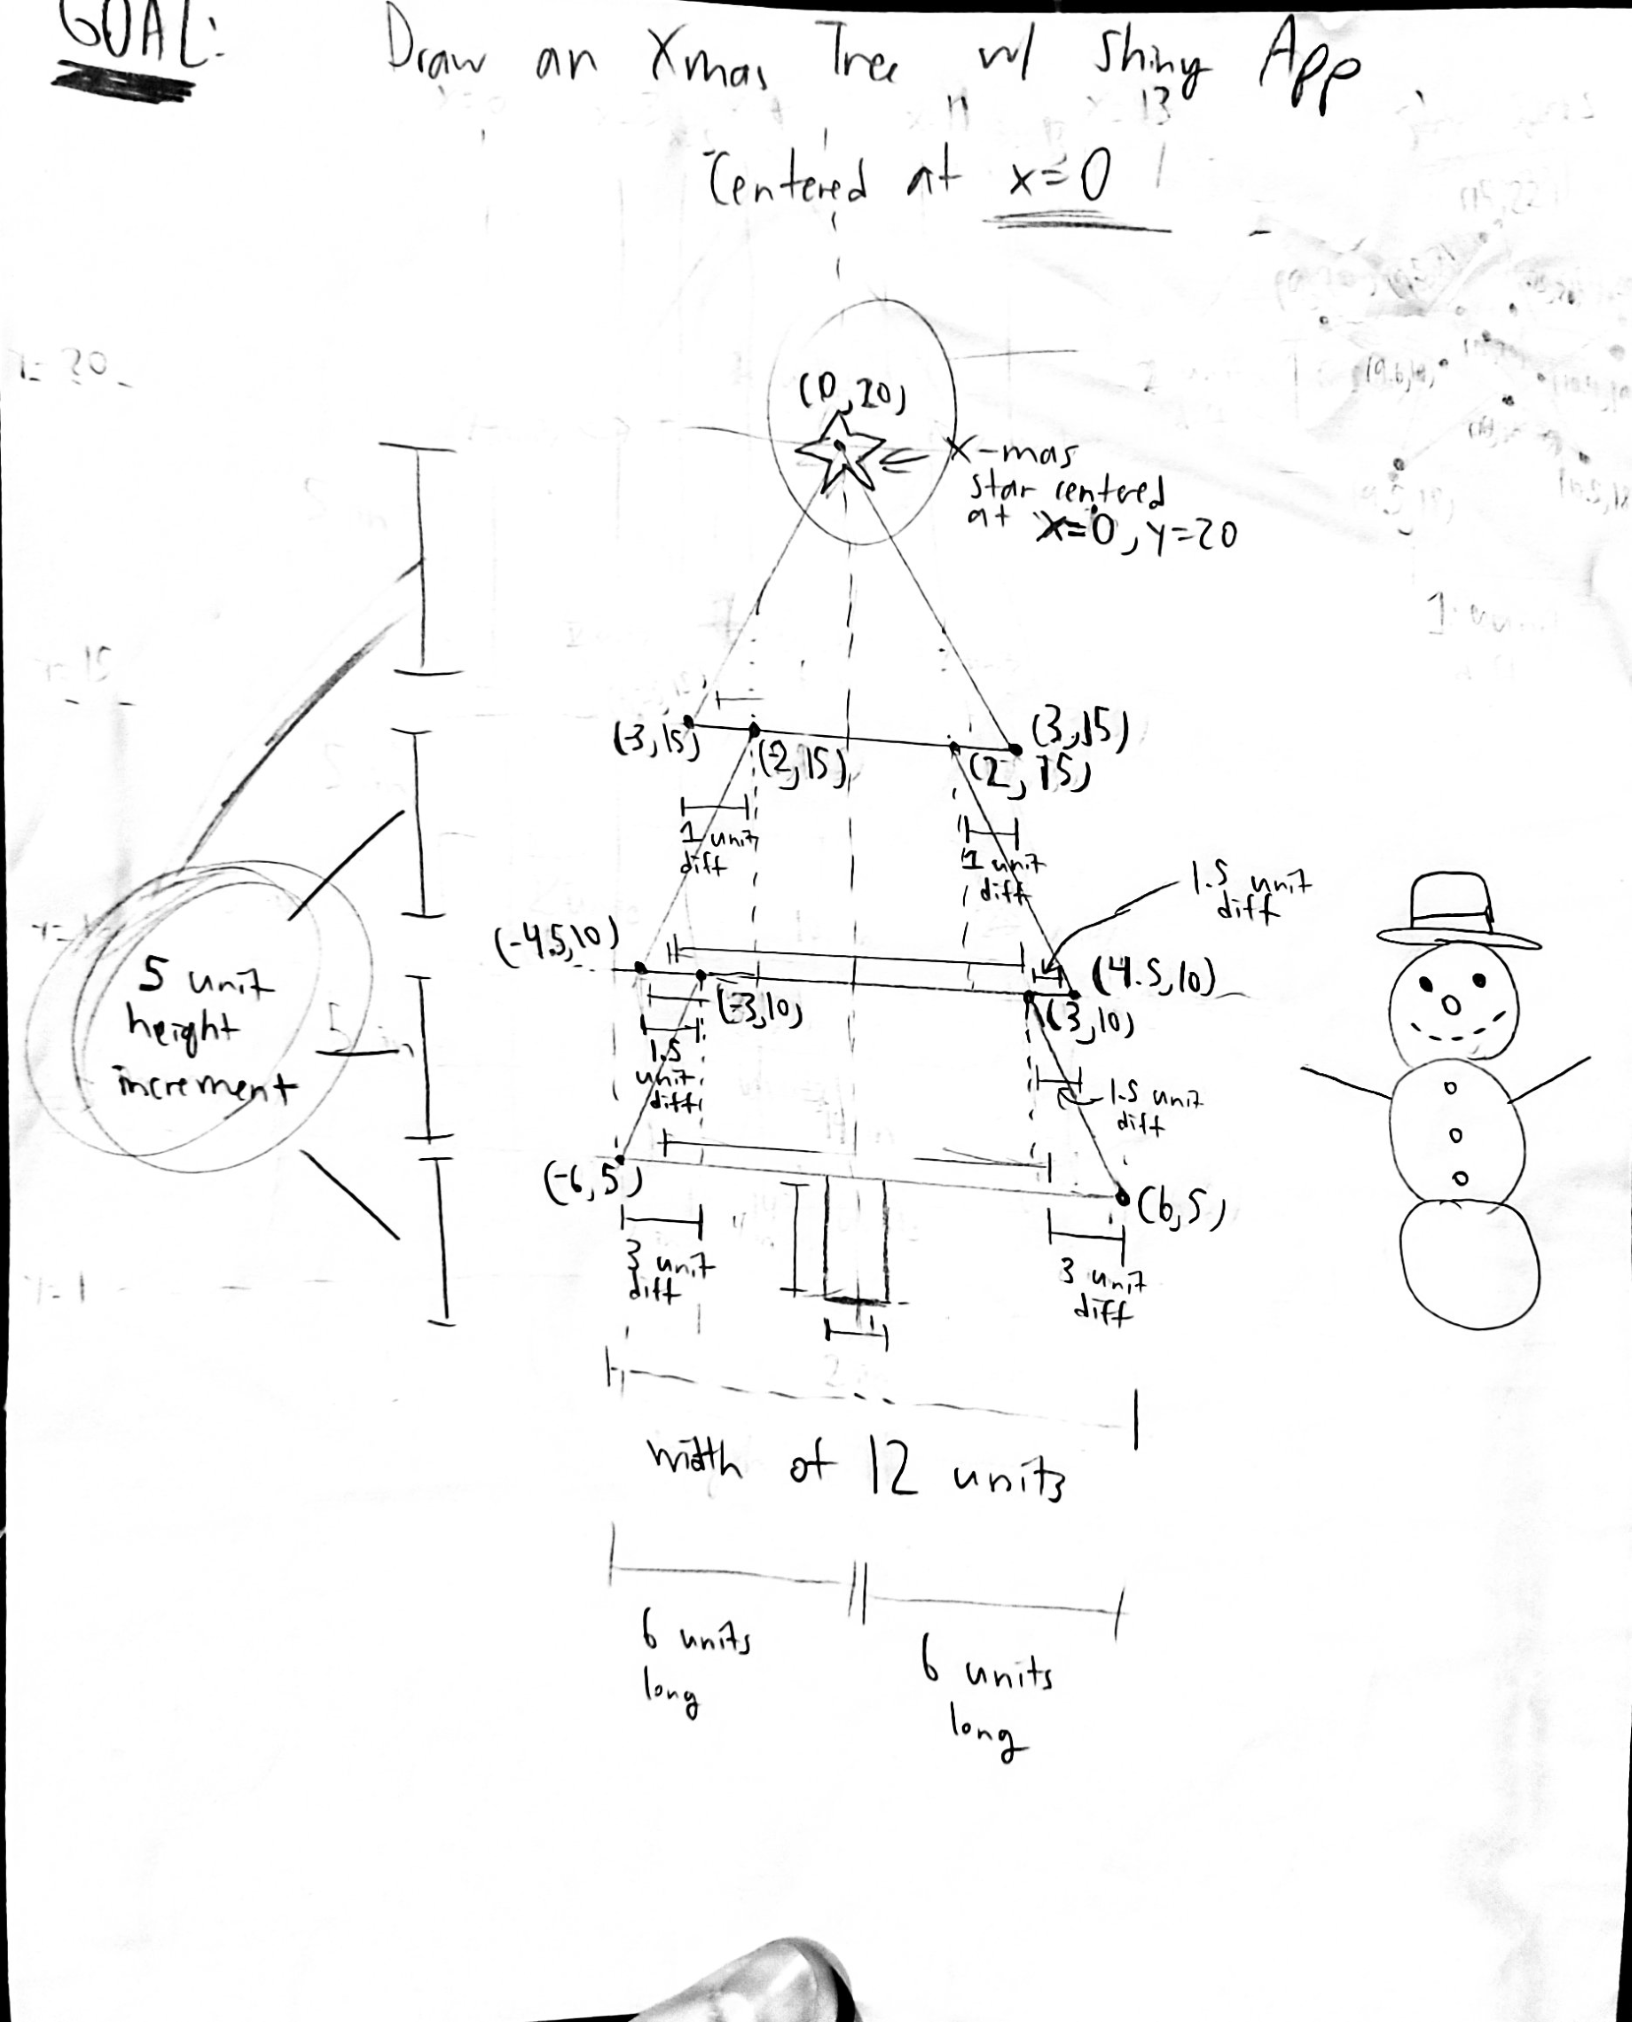 GOAL: Draw an Xmas Tree w/ Shiny App
Centered at x=0
(0,20)
X-mas
star centered
at x=0, y=20
(-3,15)
(-2,15)
(2,15)
(3,15)
1 unit
diff
1 unit
diff
1.5 unit
diff
(-4.5,10)
(-3,10)
(3,10)
(4.5,10)
5 unit
height
increment
1.5
unit
diff
1.5 unit
diff
(-6,5)
(6,5)
3 unit
diff
3 unit
diff
width of 12 units
6 units
long
6 units
long